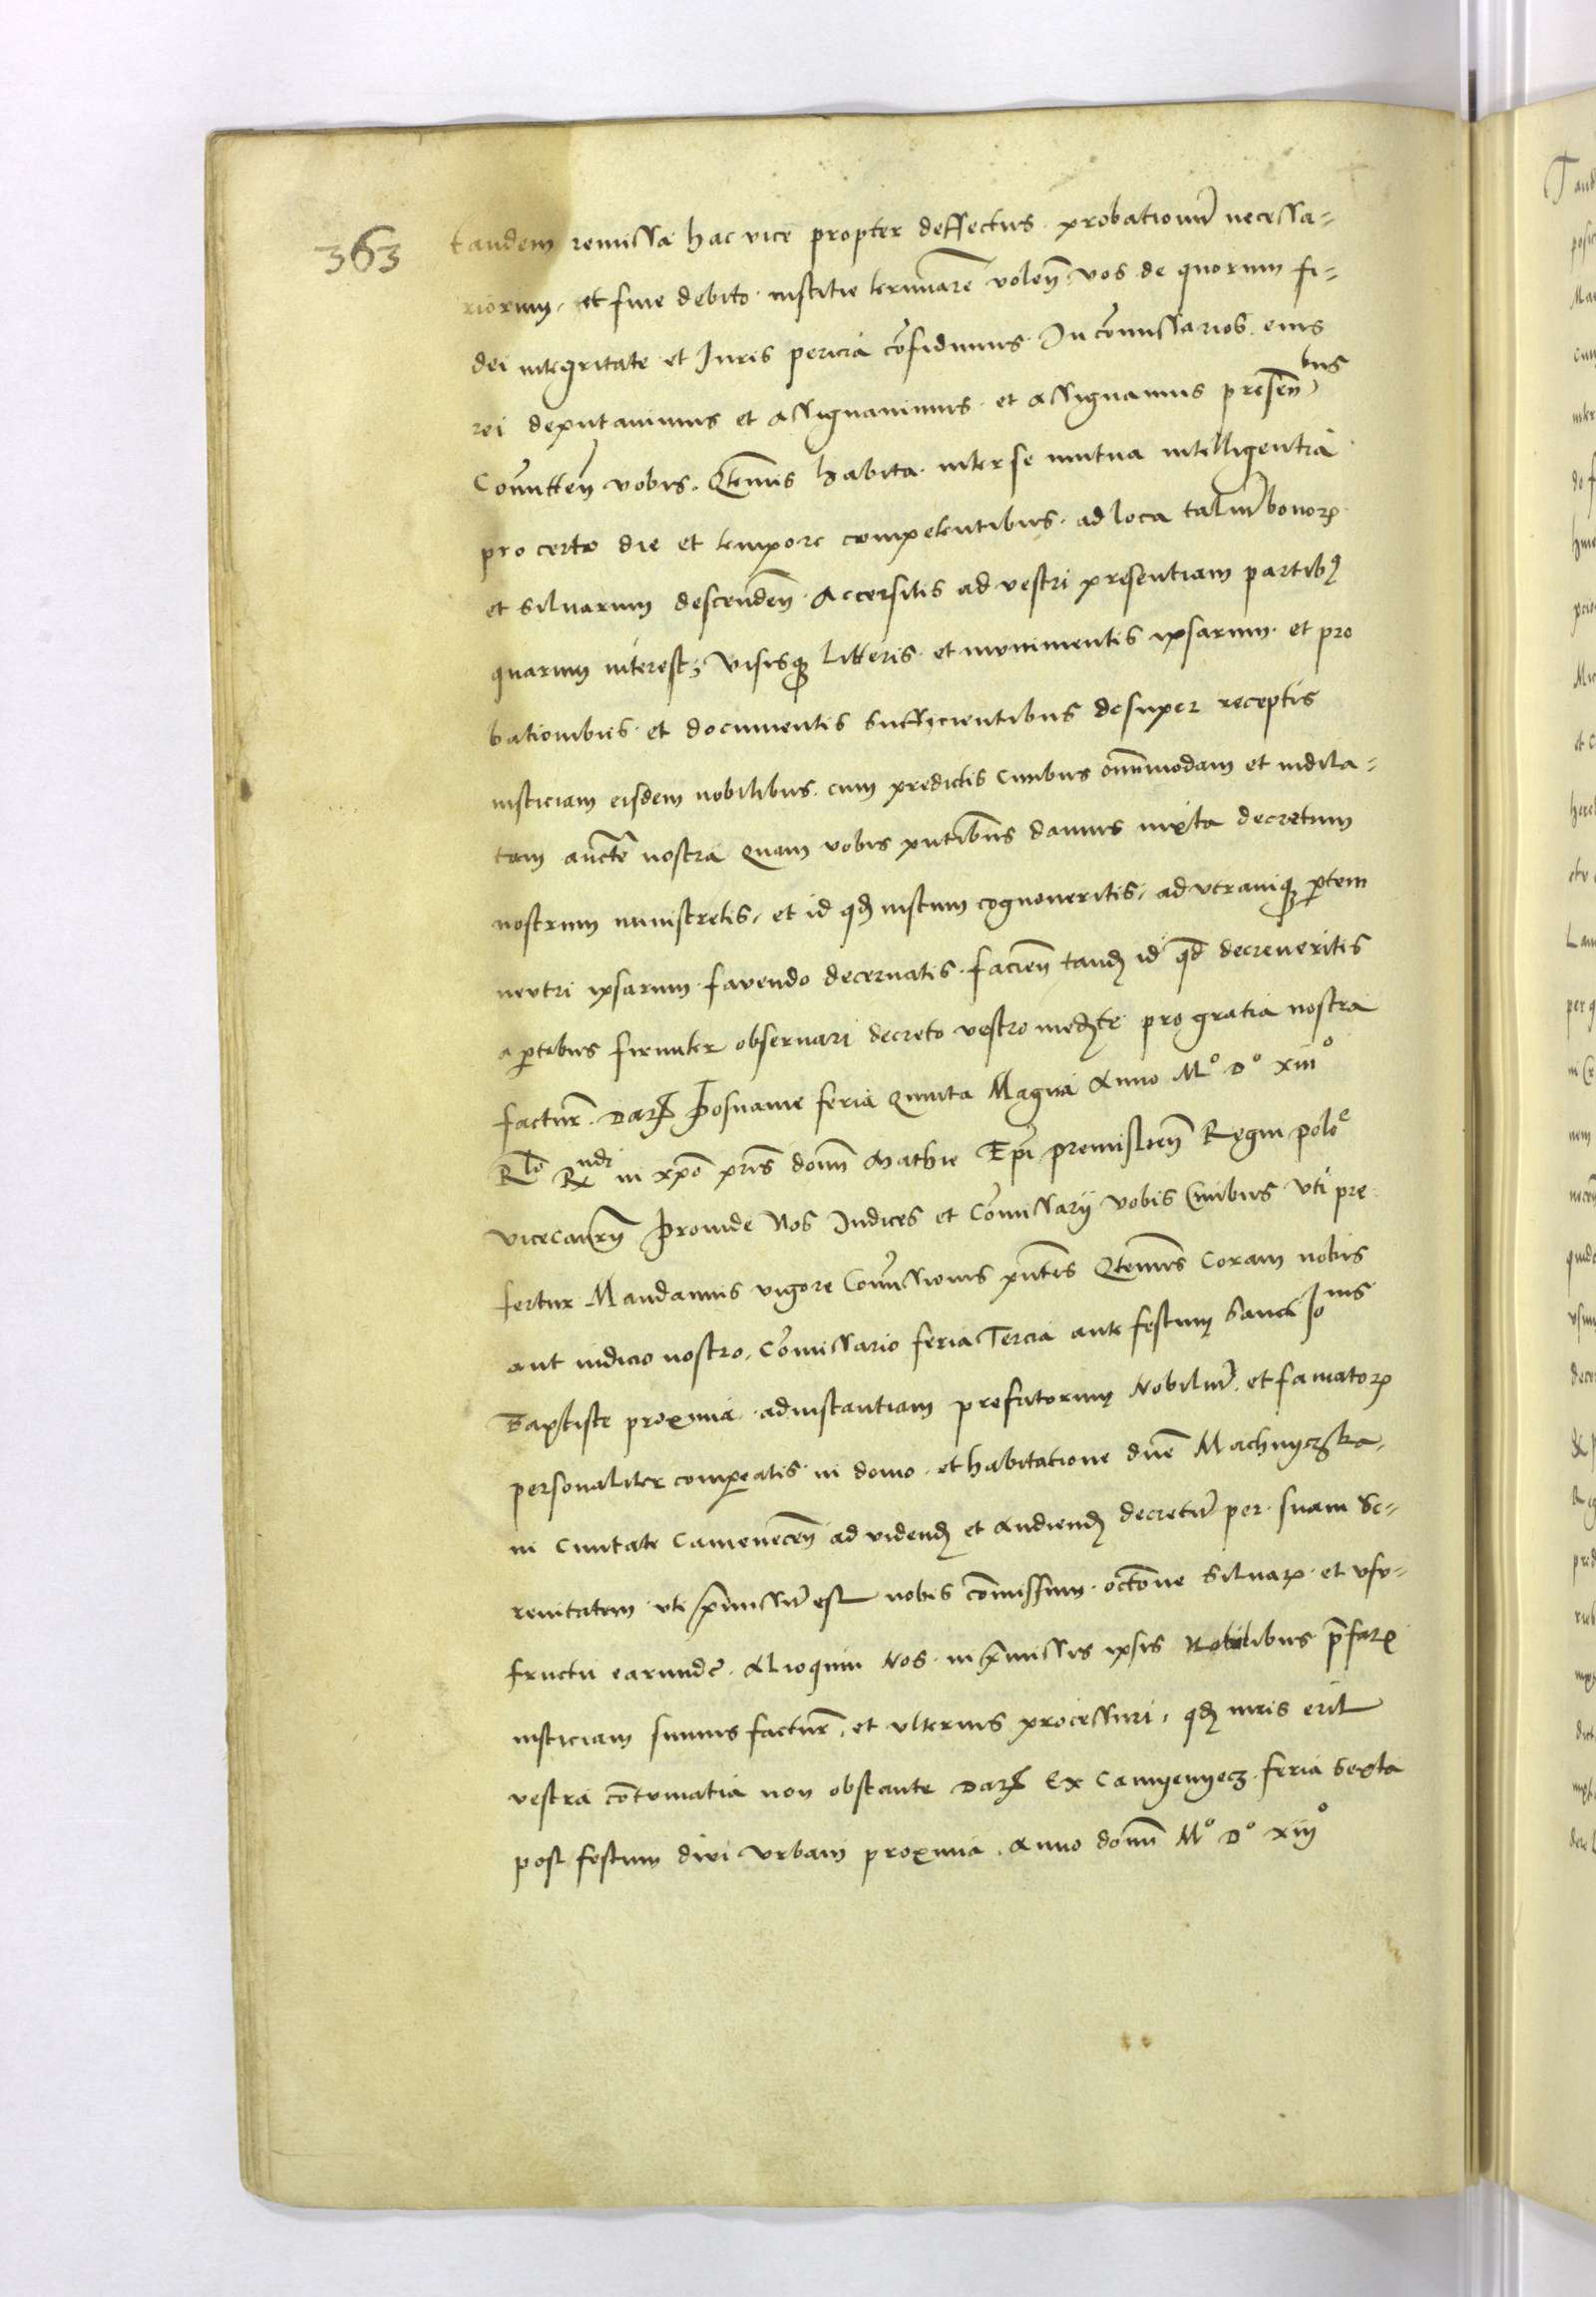 363
tandem remissa hac vice propter deffectus probationũ necessa-
riorum, et fine debito iusticie terminare̅ volen̅ vos de quorum fi-
dei integritate et Iuris pericia co̅fidimus In co̅missarios eius
rei deputavimus et assignavimus et assignamus presen̅bus
Co̅mitten̅ vobis Qten̅us habita inter se mutua intelligentia
pro certo die et tempore competentibus ad loca taliu̅ bonoꝝ
et silvarum descenden̅ Accersitis ad vestri presentiam partibꝰ
quarum interest, visisqꝫ litteris et munimentis ipsarum et pro
bationibus et documentis sufficientibus desuper receptis
iusticiam eisdem nobilibus cum predictis Civibus omnimodam et indila-
tam auc̅te nostra quam vobis pn̅tibus damus iuxta decretum
nostrum ministretis, et id qđ iustum cognoveritis, ad utramqꝫ ꝑtem
neutri ipsarum favendo decernatis facien̅ tandꝫ id qđ decreveritis
a ꝑtibus firmiter observari decreto vestro medꝫte pro gratia nostra
factur̅ Datꝫ Posnanie feria Quinta Magna Anno Mᵒ Dᵒ xiiiᵒ
Rlo Rndi in xpo̅ pr̅is domn̅ Mathie Ep̅i premislien̅ Regni poloe
vicecan̅cry̅ Proinde Nos Iudices et Co̅missarij vobis Civibus uti pre
fertur Mandamus vigore Co̅missionis pn̅tis Qten̅us Coram nobis
aut iudicio nostro Co̅missario feria Tercia ante festum Sancti Io̅nis
Baptiste proxima ad instantiam prefatorum Nobiliu̅ et famatoꝝ
personaliter compareatis in domo et habitatione dn̅e Machnyczska
in Civitate Camenecen̅ ad videndꝫ et Audiendꝫ decretu̅ per suam Se-
renitatem uti p̅missu̅ est nobis co̅missum octo̅ne silvaꝝ et usu-
fructu earunde̅ Alioquin Nos in p̅missis ipsis Nobilibus p̅faꝝ
iusticiam sumus factur̅ et ulterius processuri qđ iuris erit
vestra co̅tumatia non obstante Datꝫ Ex Camyenyecz feria Sexta
post festum divi Urbani proxima Anno domn̅ Mᵒ Dᵒ xiijᵒ